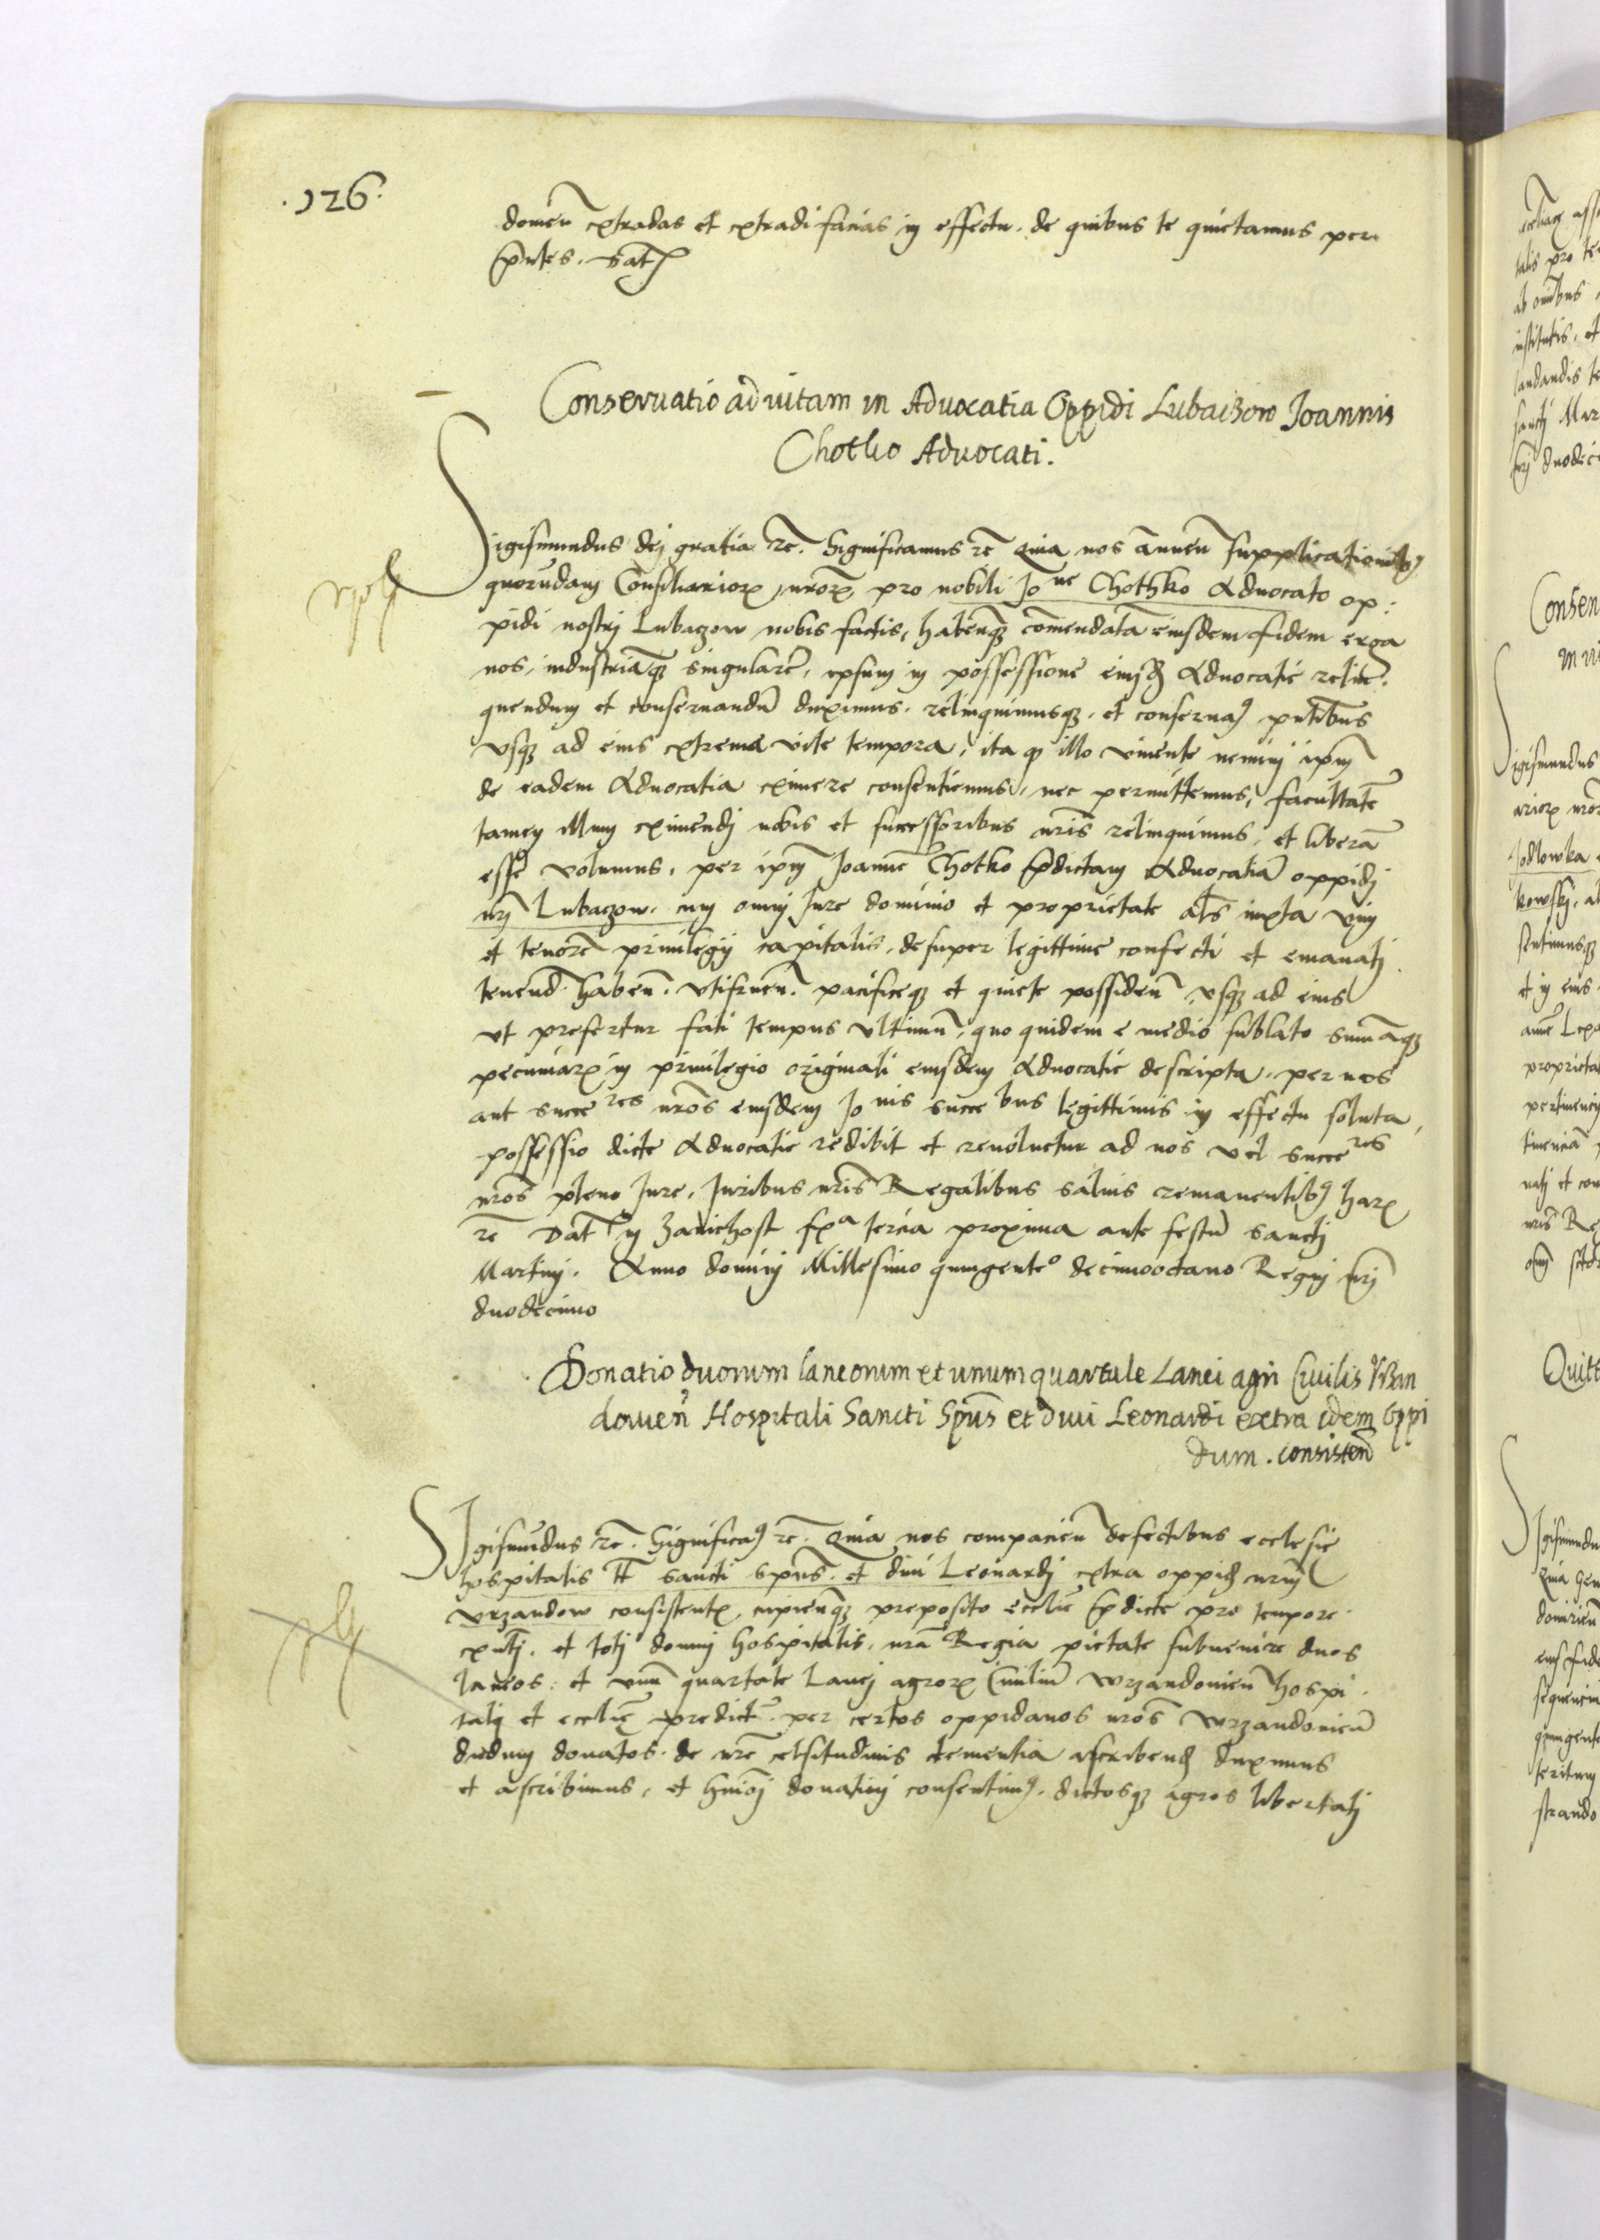 .126.
domeñ extradas et extradi facias in effectu. de quibus te quietamus per
p̃ntes. Dat̃
Conseruatio ad uitam in Aduocatia Oppidi Lubaczow Joannis
Chotko Aduocati.
Sigismundus dei gratia &c̃. Significamus &c̃ Quia nos añueñ supplicationibꝫ
quorũdam Consiliarioꝝ nr̃oꝝ, pro nobili Jo ne Chothko Aduocato op:
pidi nostri Lubaczow nobis factis, habeñqꝫ com̃endatã eiusdem fidem erga
nos, industriãqꝫ singularẽ, ipsum in possessione eiusdẽ Aduocatie relin
quendum et conseruandũ duximus. relinquimusqꝫ. et conseruaꝰ pñtibus
vsqꝫ ad eius extrema vite tempora, ita qꝫ illo viuente nemini ipm̃
de eadem Aduocatia eximere consentiemus, nec permittemus, facultatẽ
tamen illam eximendi nobis et successoribus nr̃is relinquimus, et liberã
esse volumus, per ipm̃ Joannẽ Chotko p̃dictam Aduocatiã oppidi
nr̃i Lubaczow. cum omni Jure dominio et proprietate al̃s iuxta vim
et tenorẽ priuilegii capitalis, desuper legittime confecti et emanati
tenend. habeñ. vtifrueñ. pacificeqꝫ et quiete possideñ, vsqꝫ ad eius
vt prefertur fati tempus vltimũ, quo quidem e medio sublato sum̃aqꝫ
pecuniaꝝ in priuilegio originali eiusdem Aduocatie descripta, per nos
aut succe res nr̃os eiusdem Jo nis succe bus legittimis in effectu soluta,
possessio dicte Aduocatie redibit et reuoluetur ad nos vel succe res
nr̃os pleno Jure, Juribus nr̃is Regalibus saluis remanentibꝫ haꝝ
&c̃ Dat̃ in Zawichost fr̃a tercia proxima ante festũ sancti
Martini. Anno domini Millesimo quingente o decimooctauo Regni nr̃i
duodecimo
Donatio duorum laneorum et unum quartale Lanei agri Ciuilis Vrzan
doweñ Hospitali Sancti Sp̃us et diui Leonardi extra idem Oppi
dum. consisteñ
SIgismũdus &c̃. Significaꝰ &c̃. Quia nos compacieñ defectibus ecclesie
hospitalis tt̃ sancti sp̃us. et diui Leonardi extra oppidũ nr̃um
vrzandow consistentꝭ, cupieñqꝫ preposito eccl̃ie p̃dicte pro tempore
exñti. et toti domui hospitalis, nr̃a Regia pietate subuenire duos
laneos: et vnũ quartale Lanei agroꝝ Ciuiliũ Wrzandouieñ hospi
tali et eccl̃ie predictẽ. per certos oppidanos nr̃os Wrzandouieñ
dudum donatos. de nr̃e celsitudinis clementia ascribendũ duximus
et ascribimus, et hm̃oi donationi consentimꝰ. dictosqꝫ agros libertati